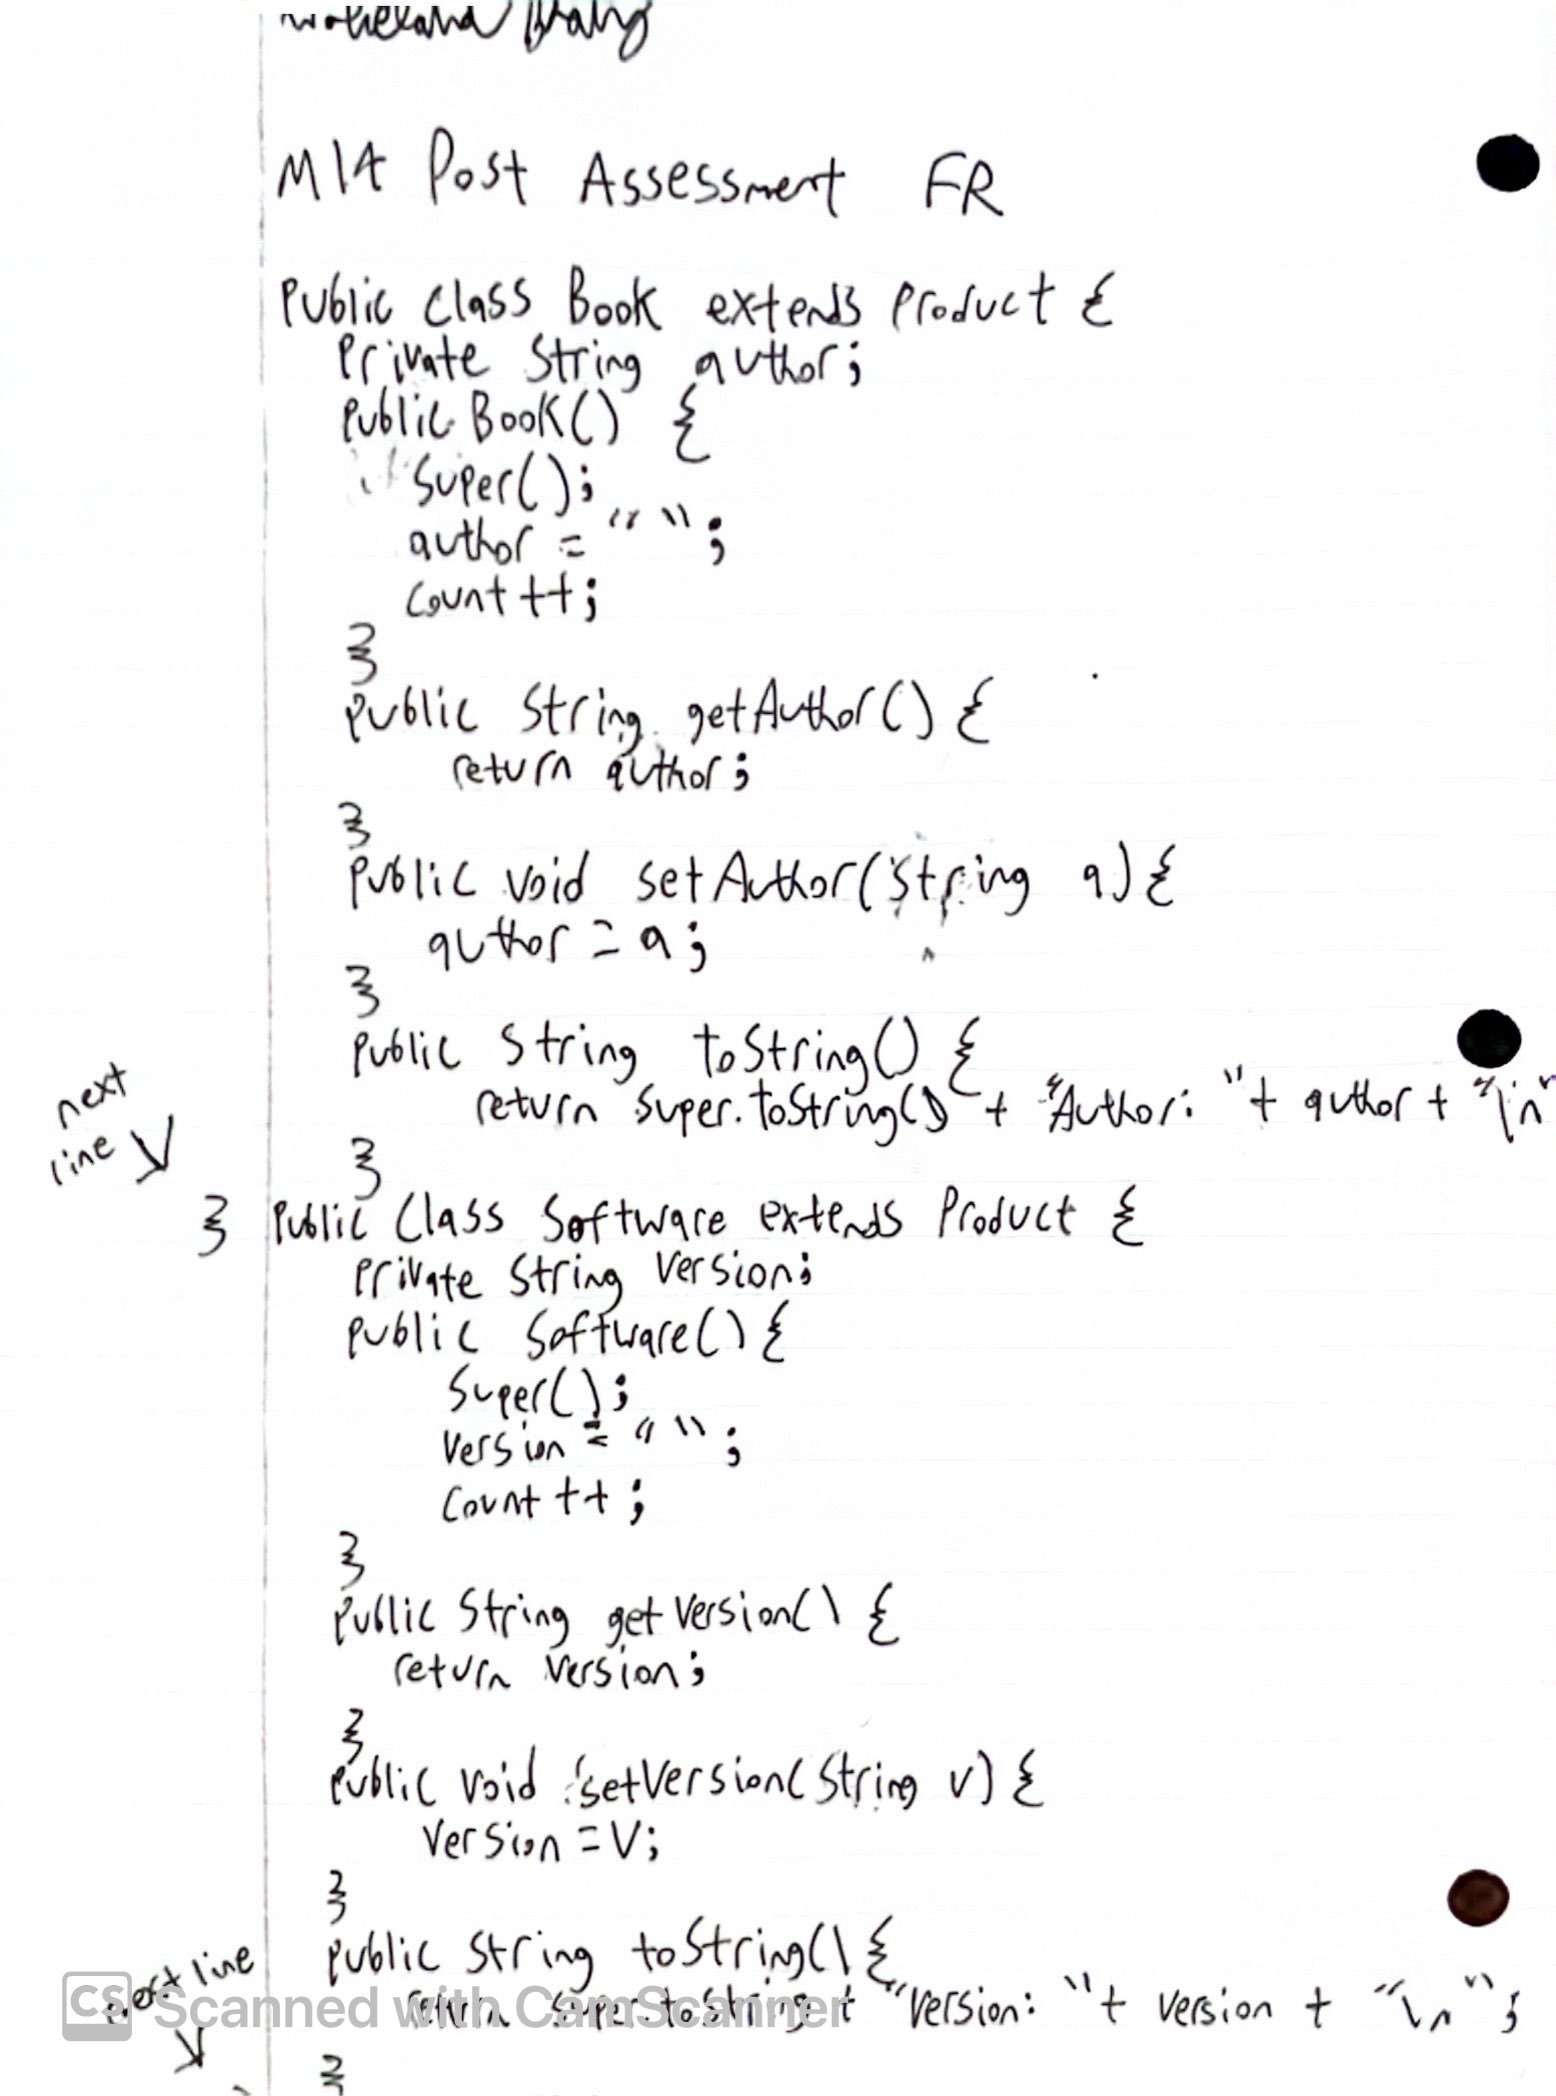 M14 Post Assessment FR
Public class Book extends Product {
Private String author;
Public Book() {
Super();
author = "";
Count ++;
}
Public String getAuthor() {
return author;
}
Public void setAuthor(String a) {
author = a;
}
Public String toString() {
return super.toString() + "Author: "+ author + "\n"
next
line
}
} Public Class Software extends Product {
Private String Version;
Public Software() {
Super();
Version = "";
Count ++;
}
Public String getVersion() {
return Version;
}
Public void setVersion(String v) {
Version = v;
}
Public String toString() {
next line
return super.toString + "Version: "+ version + "\n";
}
CS Scanned with CamScanner